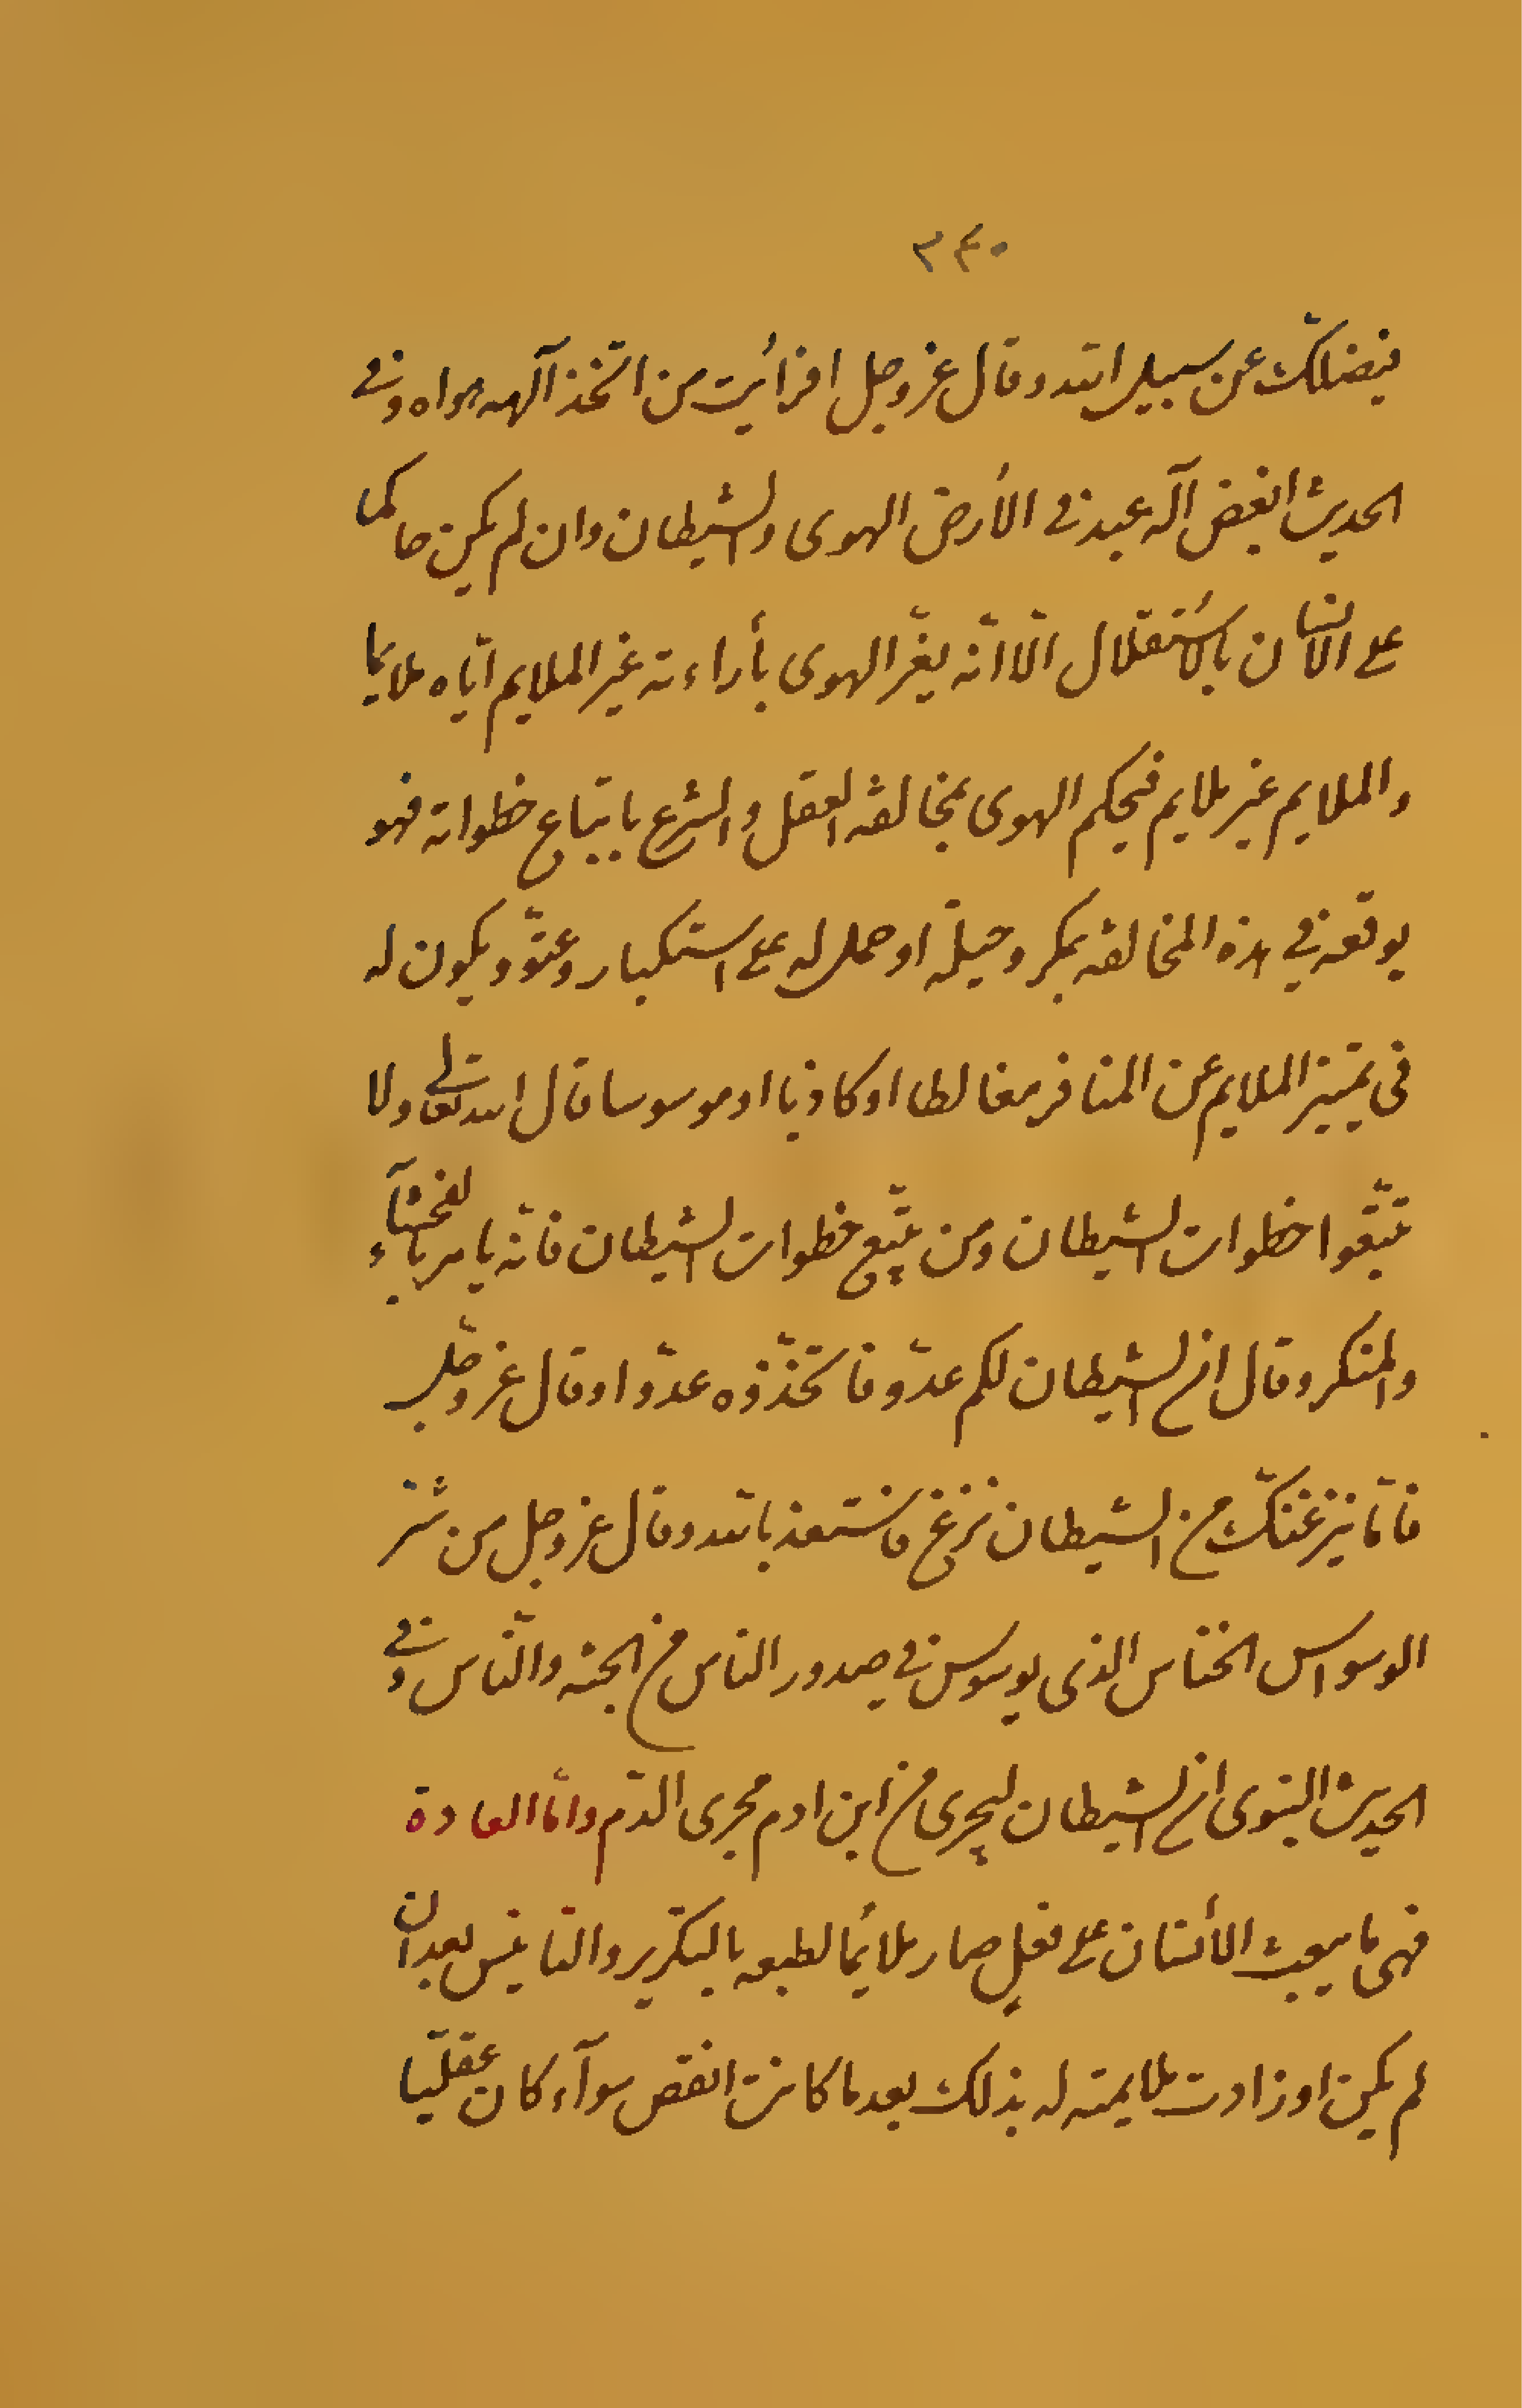 ٣٤٠
فيضلّك عن سبيل الله وقال عز وجل افرأيت من اتّخذ آلهه هواه وفى
الحديث ابغض آله عبد فى الأرض الهوى والشيطان وان لم يكن حاكما
على الانسان بالأستقلال الّا انّه يغرّ الهوى بأراءته غير الملايم ايّاه ملايما
والملايم غير ملايم فيحكم الهوى بمخالفة العقل والشرع باتباع خطواته فهو
يوقعه فى هذه المخالفة بمكر وحيلة او حمل له على استكبار وعتوّ ويكون له
فى تميّيز الملايم عن المنافر مغالطا او كاذبا او موسوسا قال الله تعالى ولا
تتّبعوا خطوات الشيطان ومن يتّبع خطوات الشيطان فانّه يامر بالفحشآء
والمنكر وقال ان الشيطان لكم عدّو فاتّخذوه عدّوا وقال عز وجلّ
فامّا ينزغنّك من الشيطان نزغ فاستعذ بالله وقال عز وجل من شرّ
الوسواس الخناس الذى يوسوس فى صدور الناس من الجنة والنّاس وفى
الحديث النبوى ان الشيطان ليجرى من ابن ادم مجرى الدّم وامّا العادة
فهى ما يبعث الأنسان على فعل صار ملائما لطبعه بالتكرير والتانيس بعد ان
لم يكن او زادت ملايمته له بذلك بعد ما كانت انقص سوآء كان عقليّا